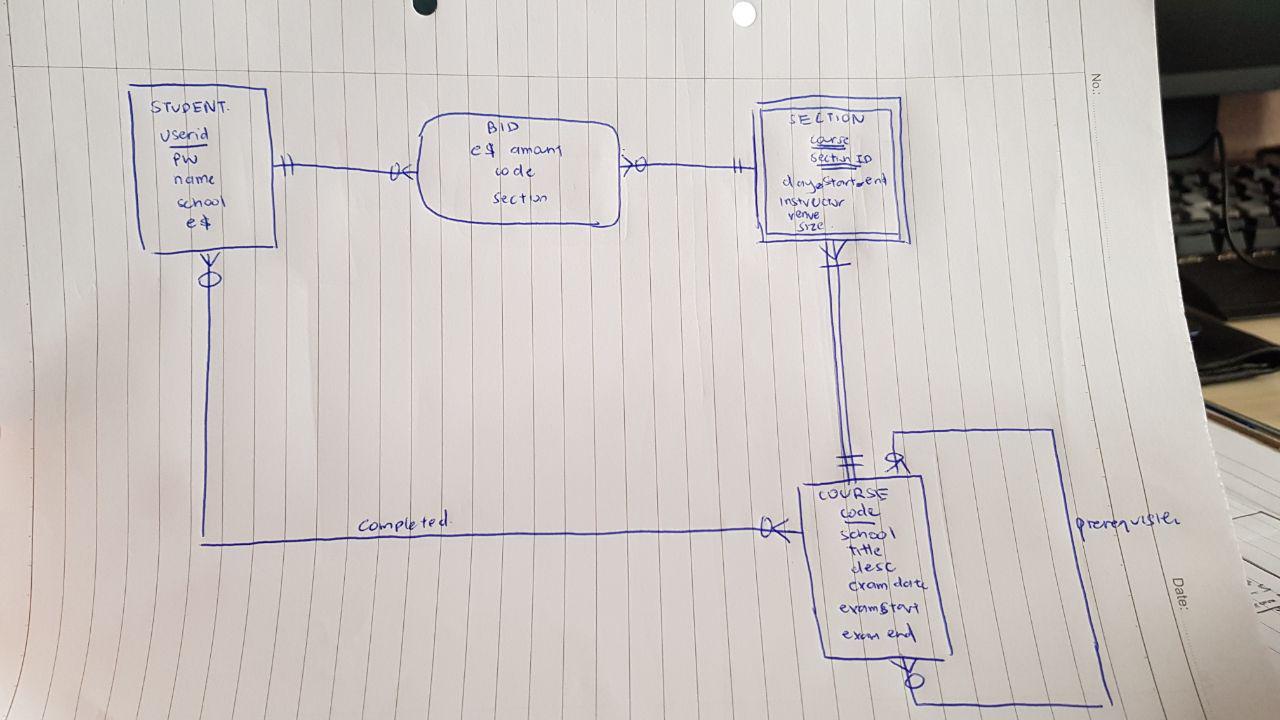 No.:
STUDENT.
userid
pw
name
school
e$
BID
e$ amant
code
section
SECTION
course
section ID
day, start, end
instructor
venue
size
completed.
COURSE
code
school
title
desc
exam date
exam start
exam end
prerequisites
Date: